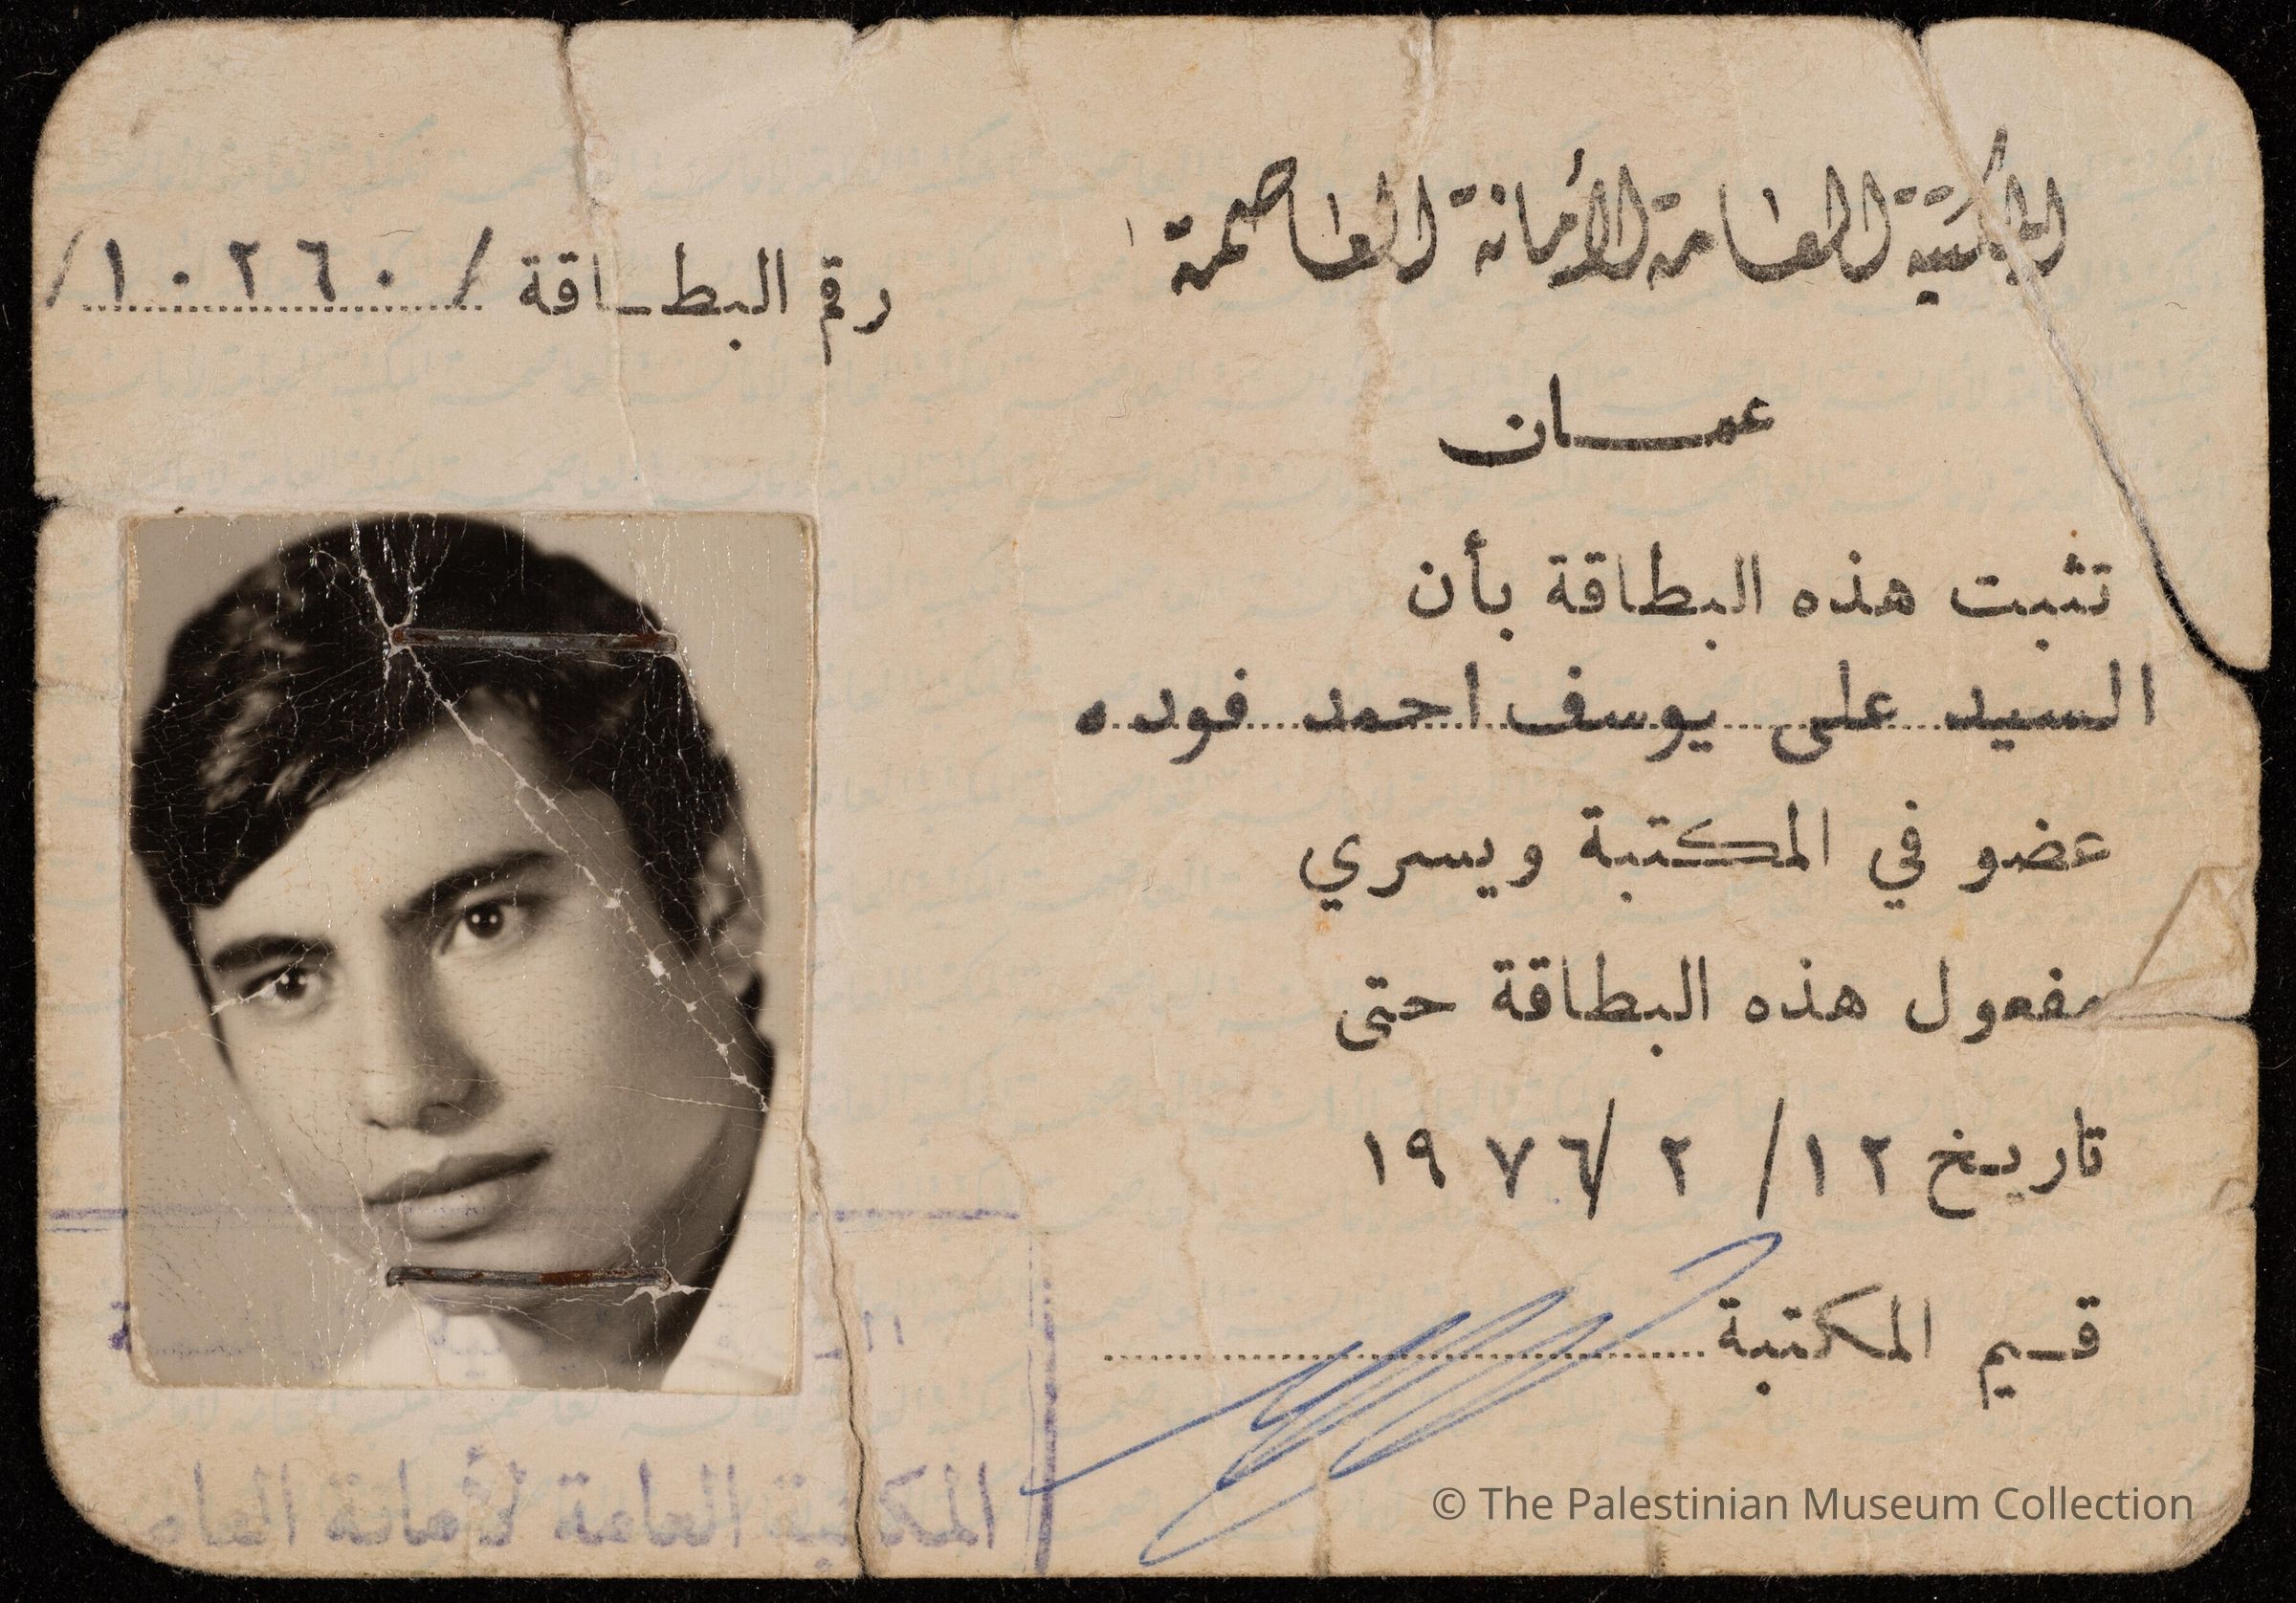 المكتبة العامة لأمانة العاصمة
رقم البطاقة /١٠٢٦٠/
عمان
تثبت هذه البطاقة بأن
السيد على يوسف احمد فوده
عضو في المكتبة ويسري
مفعول هذه البطاقة حتى
تاريخ ١٢/ ٢ /١٩٧٦
قسم المكتبة
المكتبة العامة لأمانة
© The Palestinian Museum Collection